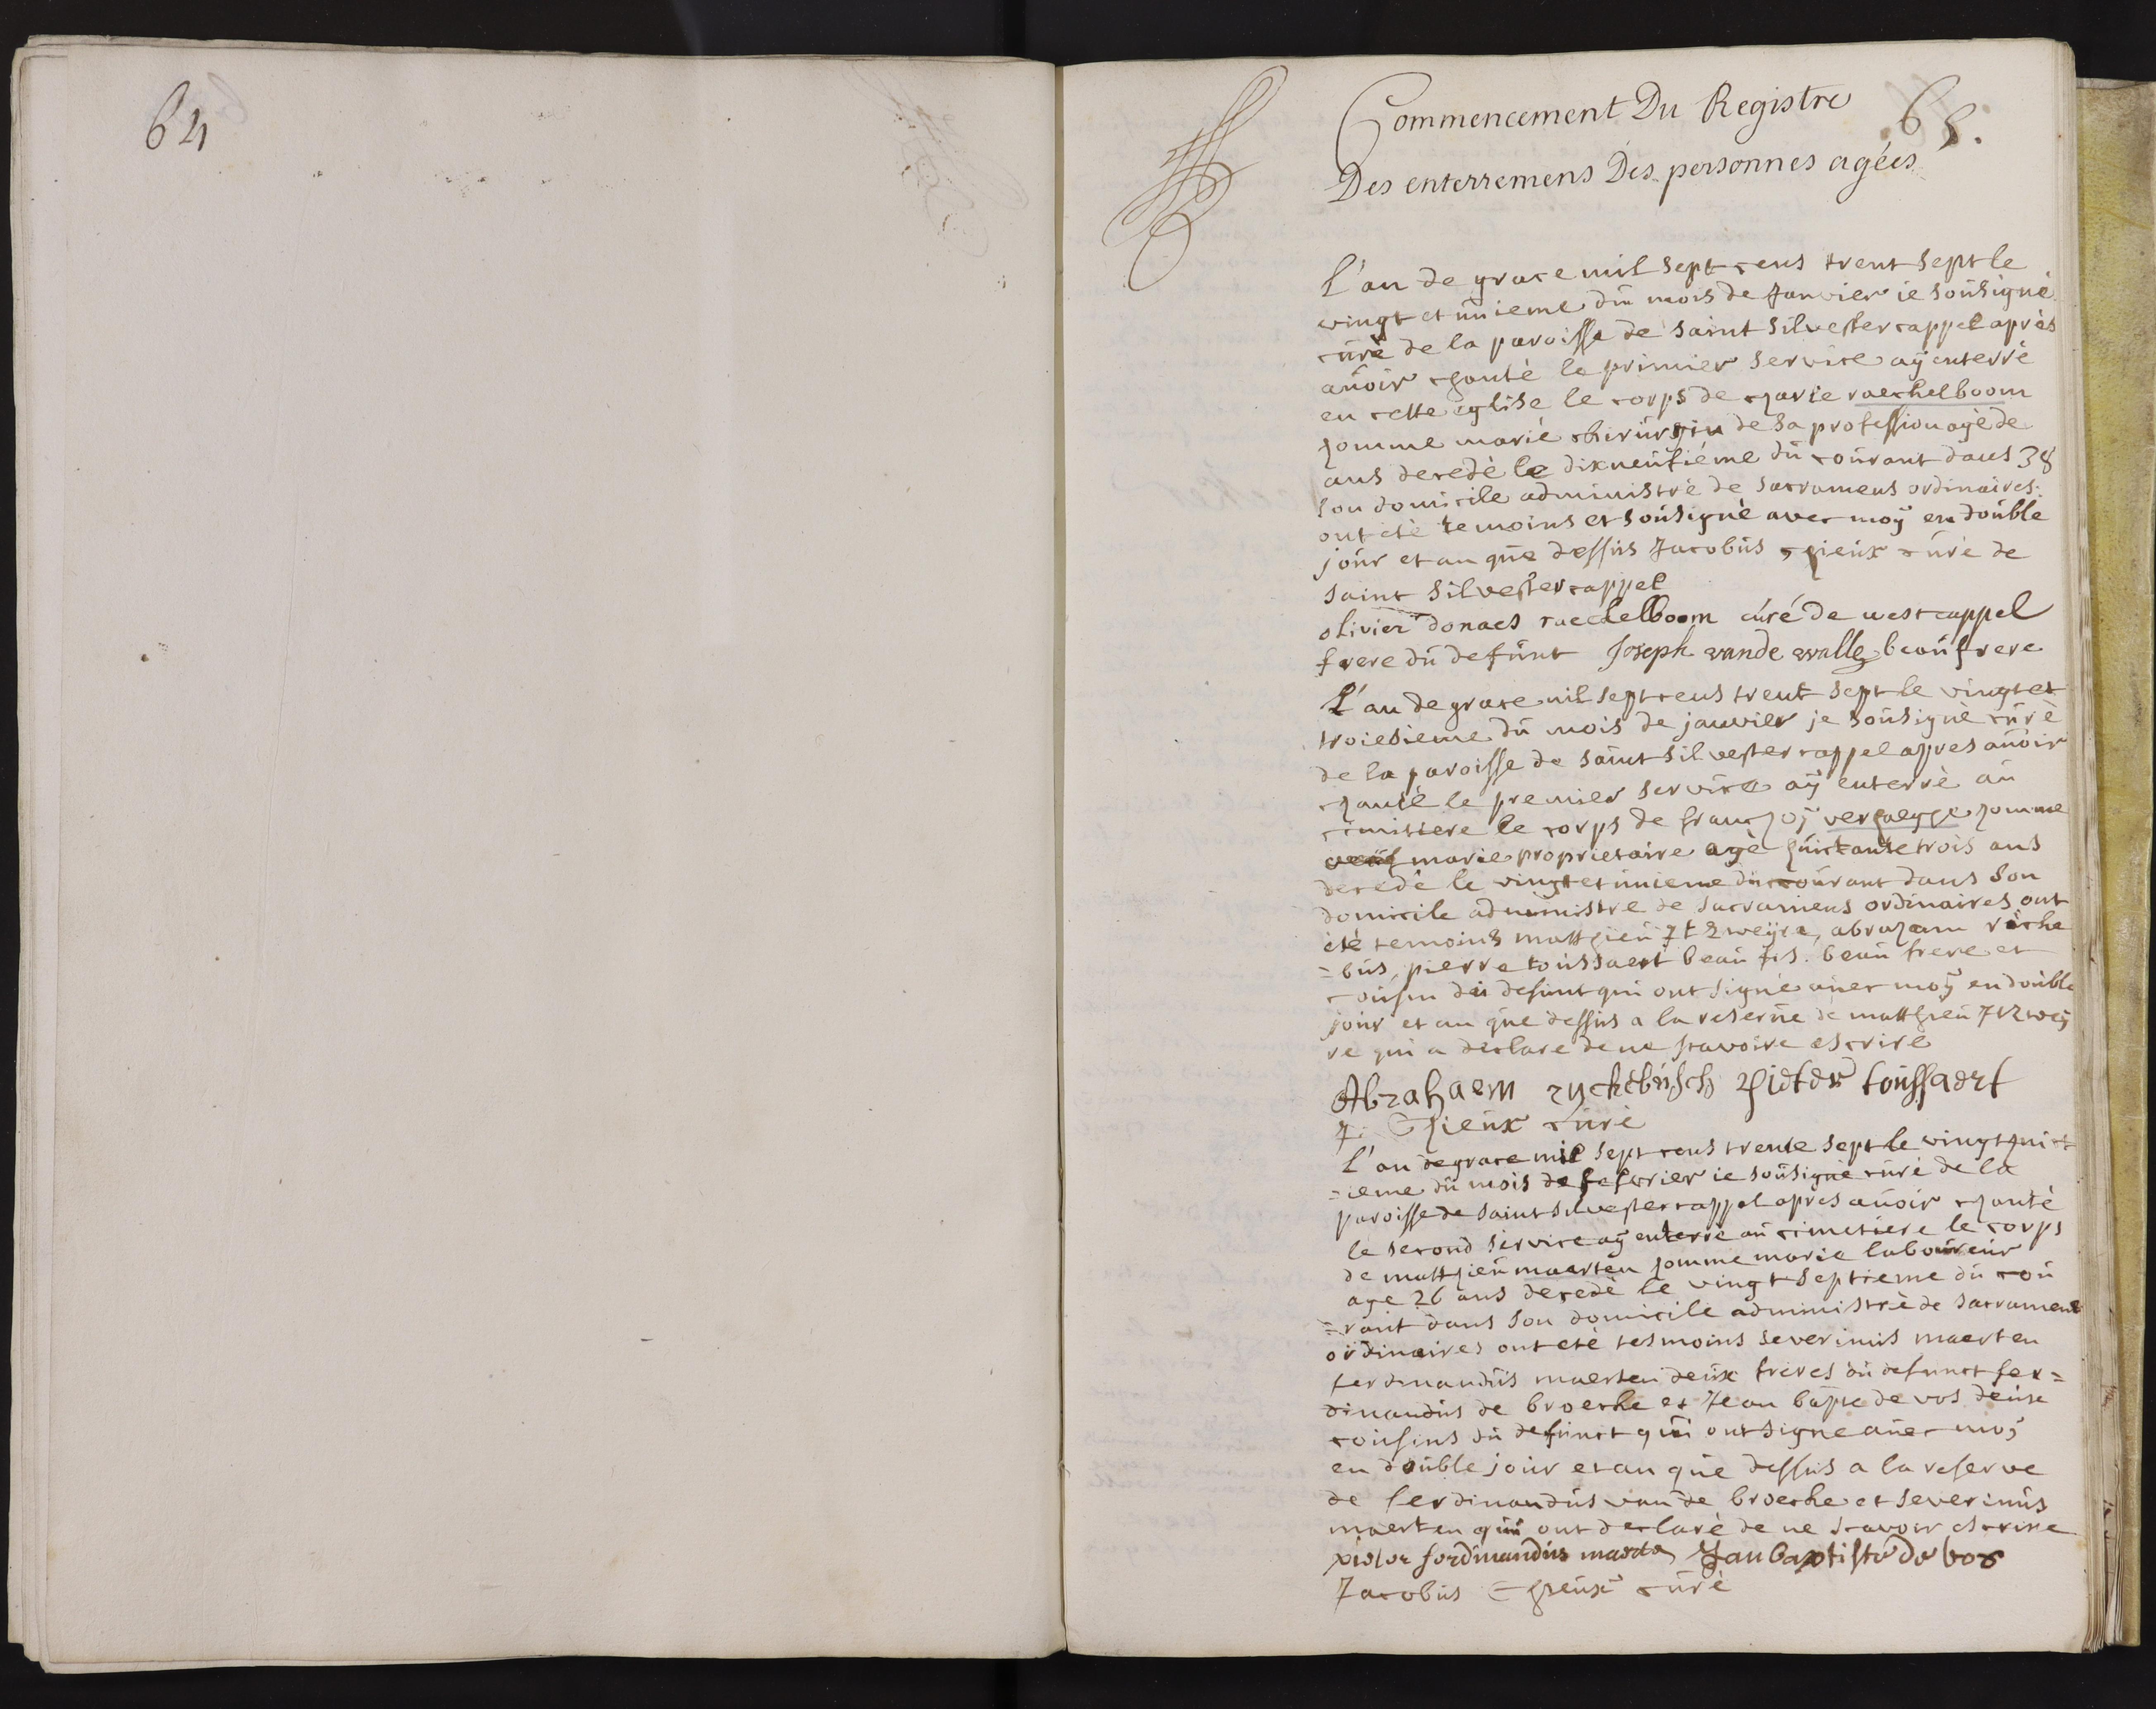 64
65.
Commencement Du Registre
Des enterremens Des personnes agées
L'an de grace mil sept cens trent sept le
vingt et unieme du mois de Janvier ie sousignè
curè de la paroisse de saint Silvestercappel après
avoir chantè le primier service aÿ enterrè
en cette eglise le corps de charle raechelboom
homme mariè chirurgin de sa profession agè de
ans decedè le dixneufiéme du courant dans 38
son domicile administrè de sacramens ordinaires.
ont etè temoins et sousignè avec moÿ en double
jour et an que dessus Jacobus chieux curè de
saint Silvestercappel
olivier donaes raechelboom curé de westcappel
frere du defunt Joseph vande walle beaufrere
L'an de grace mil sept cens trent sept le vingt et
troiesieme du mois de janvier je sousignè curè
de la paroisse de saint Silvestercappel apres avoir
chantè le premier service aÿ enterrè au
cimitiere le corps de franchoj verhaeghe homme
veuf marie proprietaire agè huictante trois ans
decedè le vingt et unieme du courant dans son
domicile administre de sacramens ordinaires ont
etè temoins matthieu abraham riche
=bus, pierre toussaert beau fis. beau frere et
cousin du defunt qui ont signè avec moÿ en double
jour et an que dessus a la reserve de matthieu
re qui a declare de ne scavoire escrire
Abrahaem ryckebusch Pieter toussaert
J. Chieux curè
L'an de grace mil sept cens trente sept le vingt huict
=ieme du mois de febvrier ie sousignè curè de la
paroisse de saint Silvestercappel apres avoir chantè
le second service aÿ enterrè au cimetiere le corps
de matthieu maerten homme marie laboureur
age 26 ans decedè le vingt septieme du cou
=rant dans son domicile administrè de sacramens
ordinaires ont etè tesmoins severinus maerten
ferdinandus maerten deux freres du defunct fer=
dinandus de broecke et Jean bapte de vos deux
cousins du defunct qui ont signe avec moÿ
en double jour et an que dessus a la reserve
de ferdinandus van de broecke et severinus
maerten qui ont declarè de ne scavoir escrire
pieter ferdinandus maerten Jan baptiste de vos
Jacobus Chieux curè